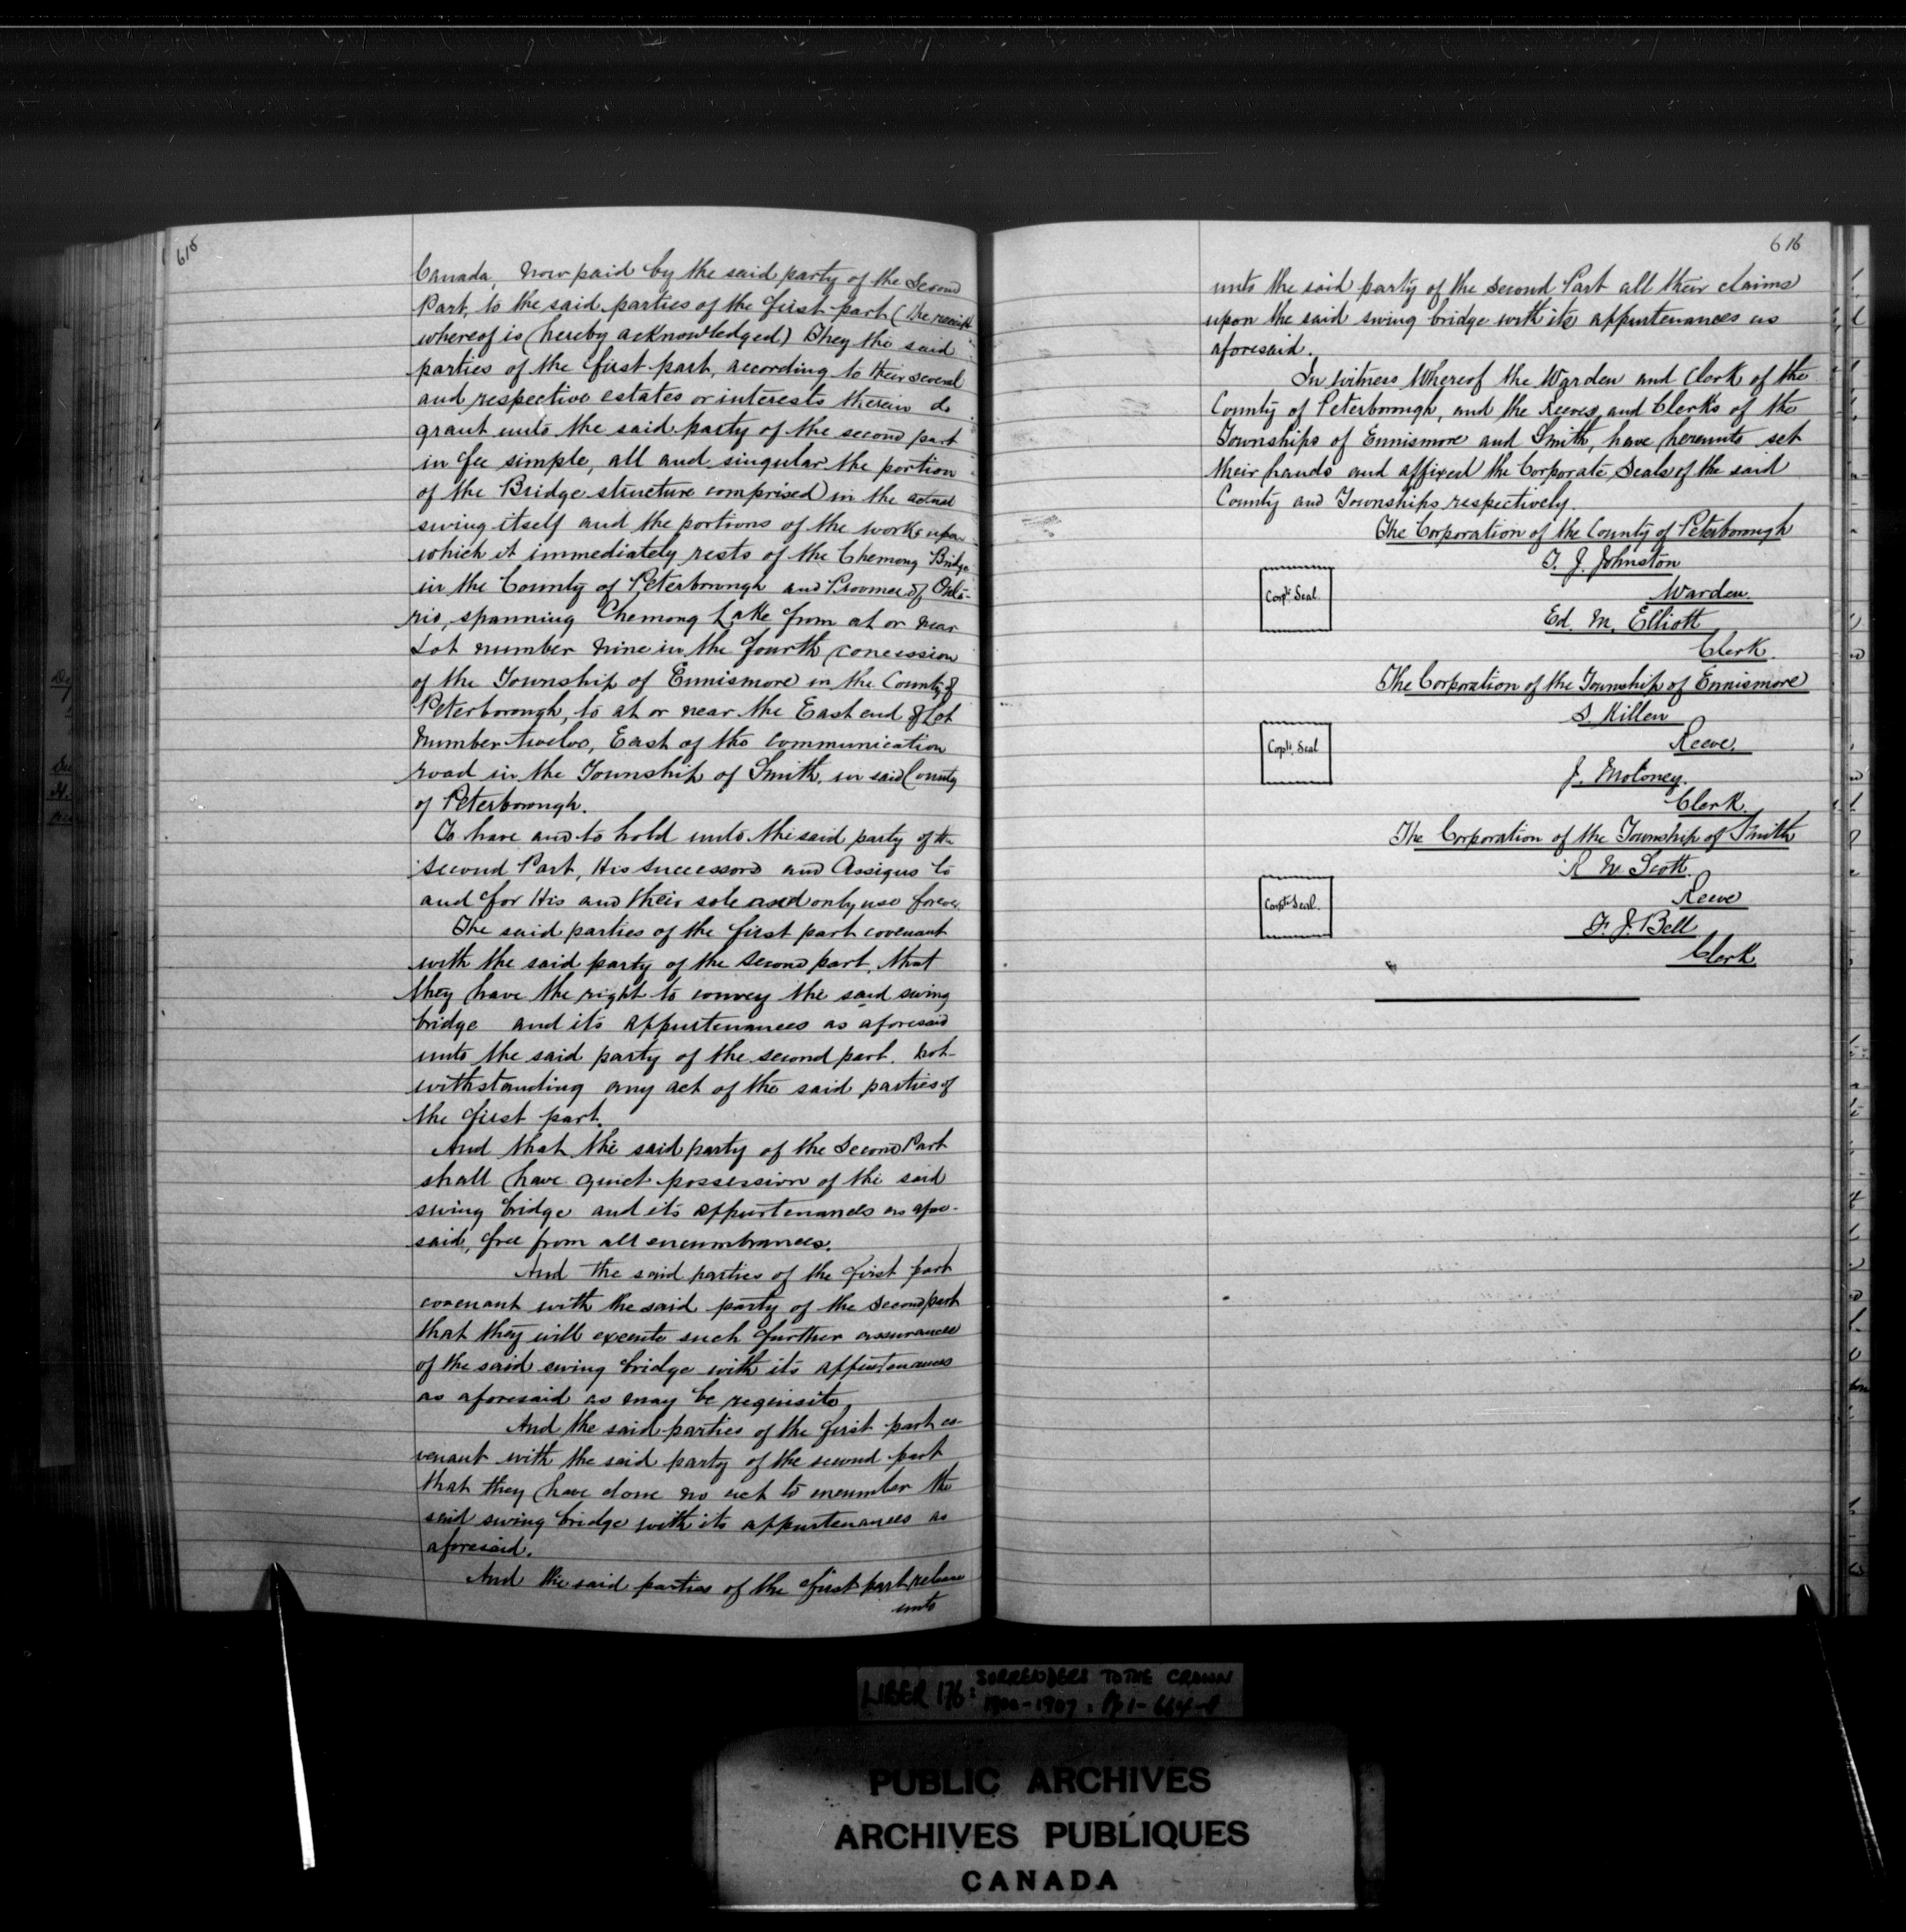 615
Canada, now paid by the said party of the Second
Part, to the said parties of the first part (the receipt
whereof is hereby acknowledged) They the said
parties of the first part, according to their several
and respective estates or interests therein do
grant unto the said party of the second part
in fee simple, all and singular the portion
of the Bridge structure comprised in the actual
swing itself and the portions of the works upon
which it immediately rests of the Chemong Bridge
in the County of Peterborough and Province of Onta-
rio, spanning Chemong Lake from at or near
Lot number nine in the fourth concession
of the Township of Ennismore in the County of
Peterborough, to at or near the East end of Lot
number twelve, East of the communication
road in the Township of Smith, in said County
of Peterborough.
To have and to hold unto the said party of the
Second Part, His Successors and Assigns to
and for His and their sole and only use forever.
The said parties of the first part covenant
with the said party of the second part, that
they have the right to convey the said swing
bridge and its appurtenances as aforesaid
unto the said party of the second part. not-
withstanding any act of the said parties of
the first part.
And that the said party of the Second Part
shall have quiet possession of the said
swing bridge and its appurtenances as afore-
said, free from all encumbrances.
And the said parties of the first part
covenant with the said party of the second part
that they will execute such further assurances
of the said swing bridge with its appurtenances
as aforesaid as may be requisite,
And the said parties of the first part co-
venant with the said party of the second part
that they have done no act to encumber the
said swing bridge with its appurtenances as
aforesaid.
And the said parties of the first part release
unto
616
unto the said party of the second Part all their claims
upon the said swing bridge with its appurtenances as
aforesaid.
In witness Whereof the Warden and Clerk of the
County of Peterborough, and the Reeves, and Clerks of the
Townships of Ennismore and Smith, have hereunto set
their hands and affixed the Corporate Seals of the said
County and Townships respectively.
The Corporation of the County of Peterborough
T. J. Johnston
Warden.
Corpte Seal.
Ed. M. Elliott
Clerk.
The Corporation of the Township of Ennismore
S. Killen
Reeve.
Coplt. Seal
J. Moloney.
Clerk.
The Corporation of the Township of Smith
R W Scott.
Reeve
Corpte Seal.
F. J. Bell
Clerk
LIBER 176: SURRENDERS TO THE CROWN
1900-1907: Pp 1-664-A
PUBLIC ARCHIVES
ARCHIVES PUBLIQUES
CANADA